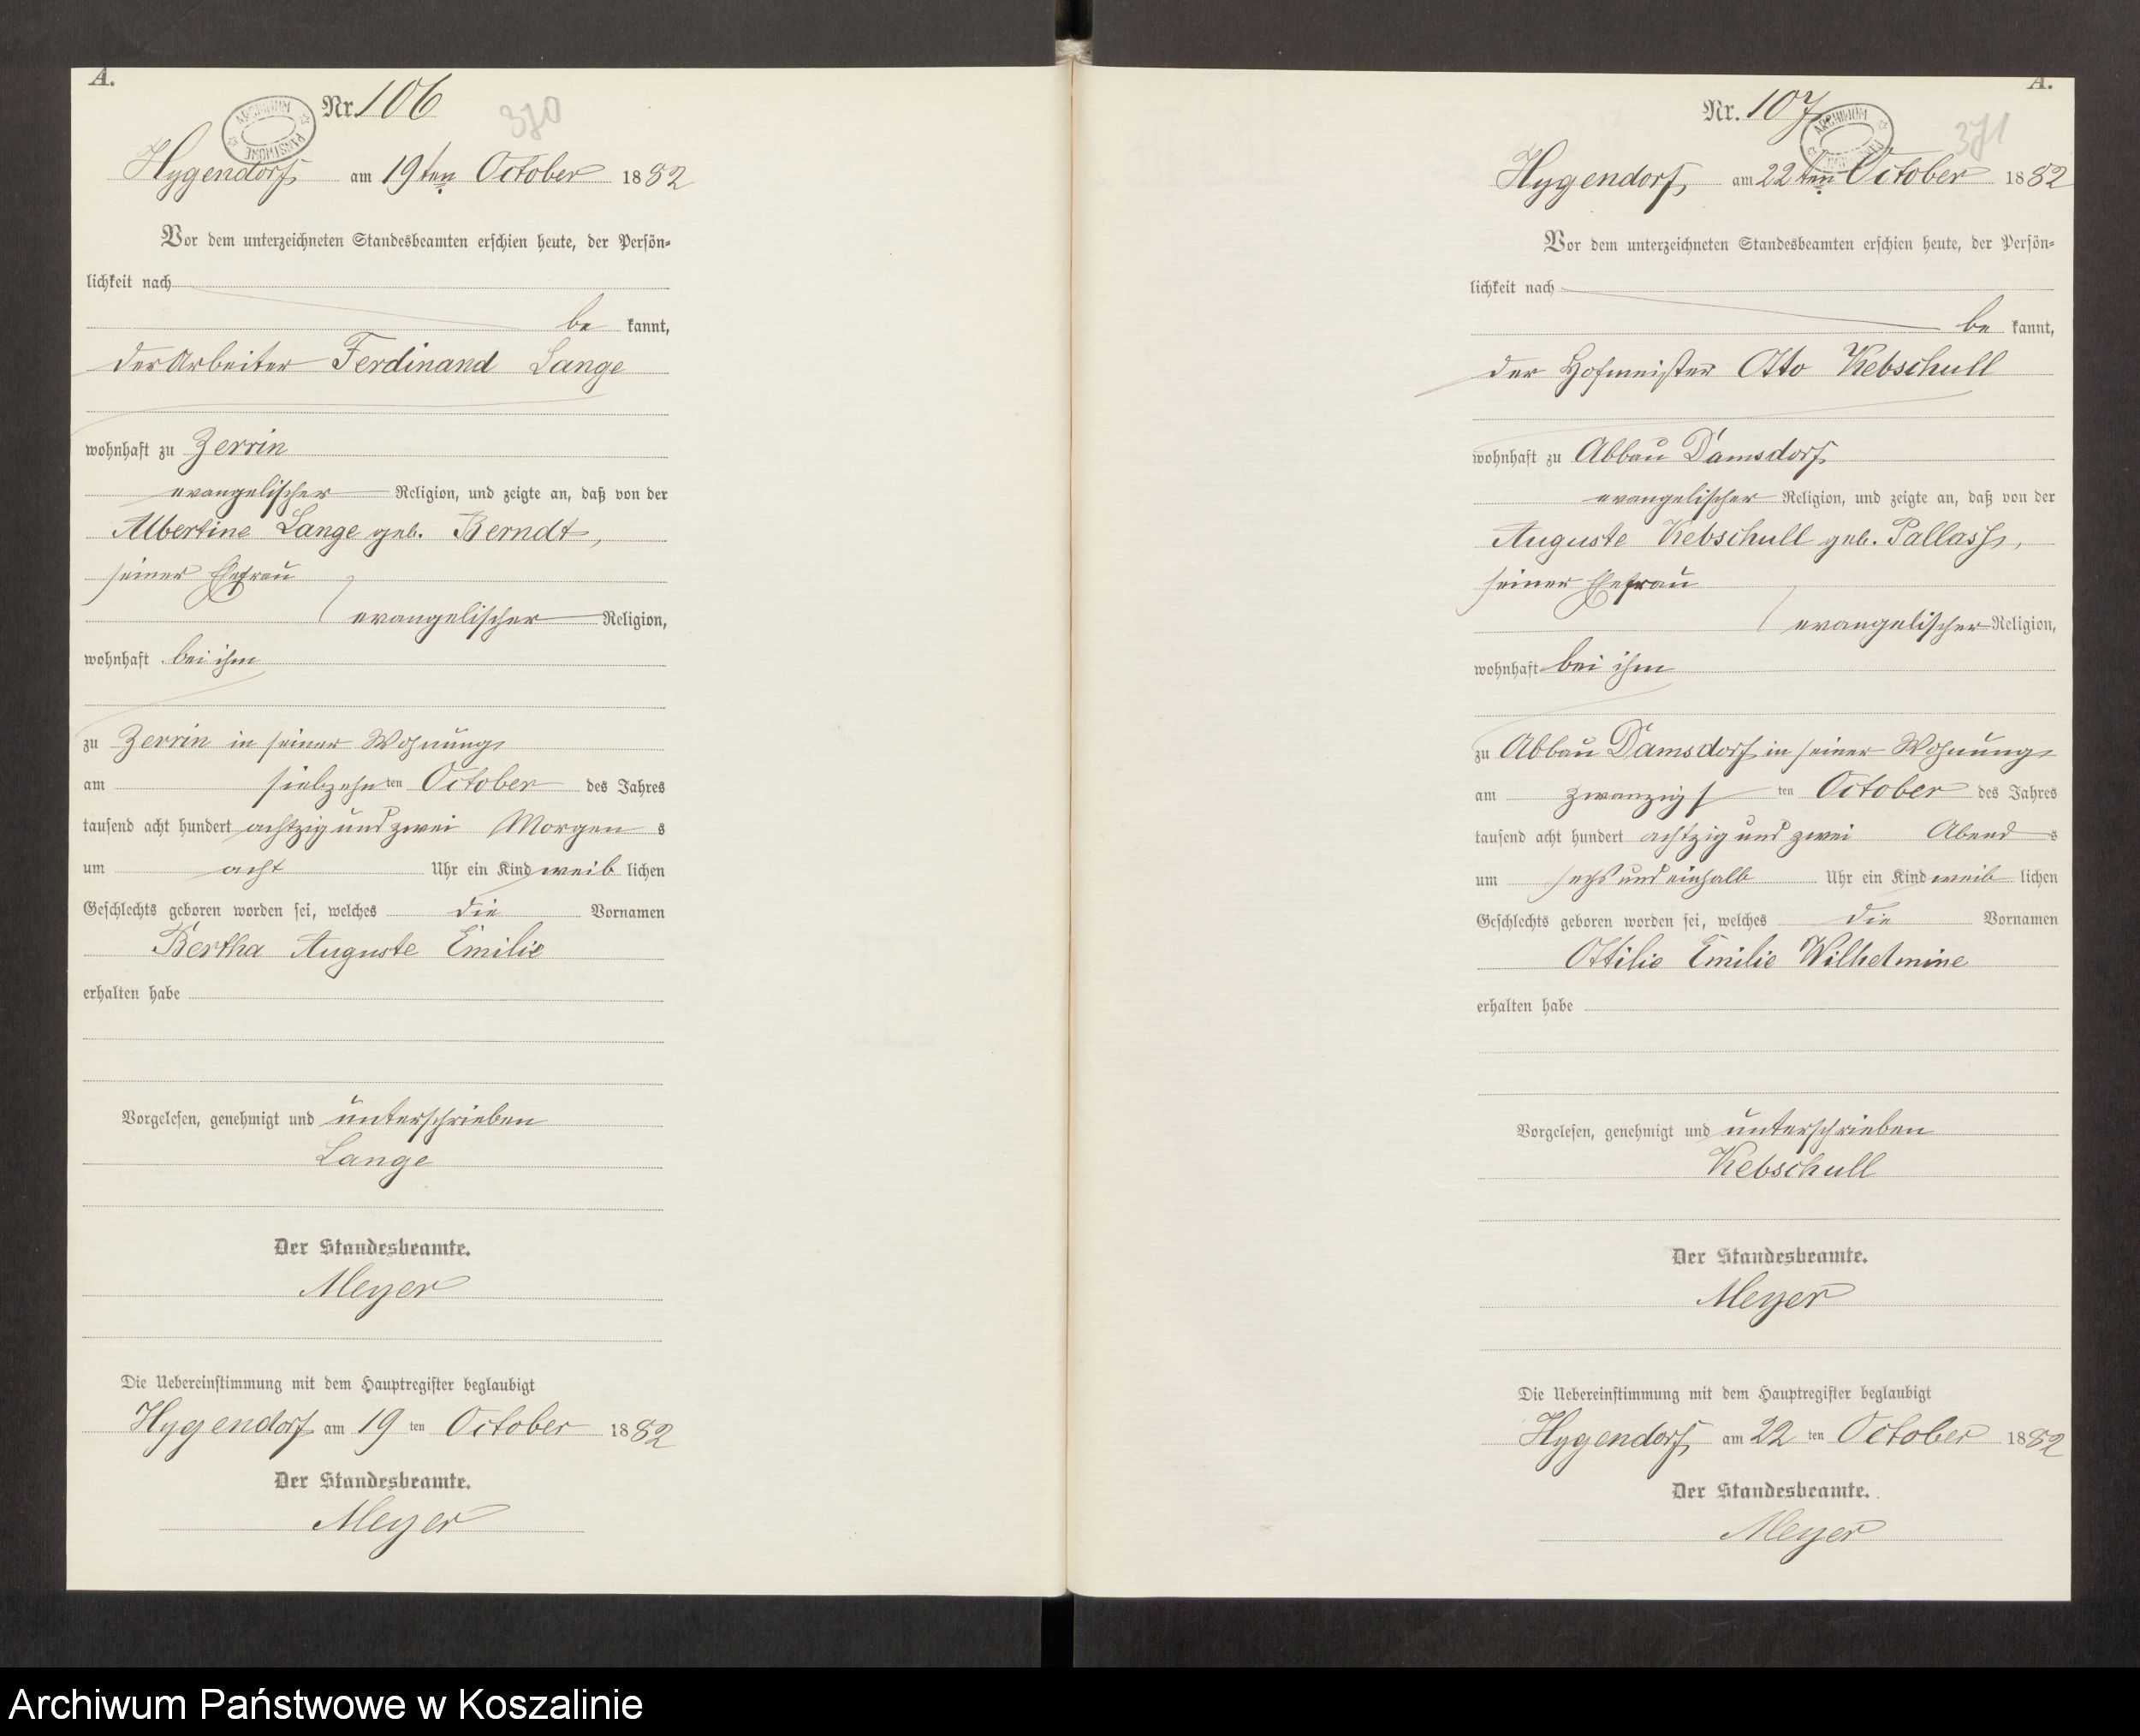 A.
Nr. 106
370
ARCHIWUM PAŃSTWOWE
Hygendorf am 19ten October 1882
Vor dem unterzeichneten Standesbeamten erschien heute, der Persön-
lichkeit nach
be kannt,
der Arbeiter Ferdinand Lange
wohnhaft zu Zerrin
evangelischer Religion, und zeigte an, daß von der
Albertine Lange geb. Berndt,
seiner Ehefrau
evangelischer Religion,
wohnhaft bei ihm
zu Zerrin in seiner Wohnung
am siebzehn ten October des Jahres
tausend acht hundert achtzig und zwei Morgen s
um acht Uhr ein Kind weib lichen
Geschlechts geboren worden sei, welches die Vornamen
Bertha Auguste Emilie
erhalten habe
Vorgelesen, genehmigt und unterschrieben
Lange
Der Standesbeamte.
Meyer
Die Uebereinstimmung mit dem Hauptregister beglaubigt
Hygendorf am 19 ten October 1882
Der Standesbeamte.
Meyer
A.
Nr. 107
371
ARCHIWUM
Hygendorf am 22ten October 1882
Vor dem unterzeichneten Standesbeamten erschien heute, der Persön-
lichkeit nach
be kannt,
der Hofmeister Otto Kebschull
wohnhaft zu Abbau Damsdorf
evangelischer Religion, und zeigte an, daß von der
Auguste Kebschull geb. Pallass,
seiner Ehefrau
evangelischer Religion,
wohnhaft bei ihm
zu Abbau Damsdorf in seiner Wohnung
am zwanzigs ten October des Jahres
tausend acht hundert achtzig und zwei Abend s
um sechs und einhalb Uhr ein Kind weib lichen
Geschlechts geboren worden sei, welches die Vornamen
Ottilie Emilie Wilhelmine
erhalten habe
Vorgelesen, genehmigt und unterschrieben
Kebschull
Der Standesbeamte.
Meyer
Die Uebereinstimmung mit dem Hauptregister beglaubigt
Hygendorf am 22 ten October 1882
Der Standesbeamte.
Meyer
Archiwum Państwowe w Koszalinie